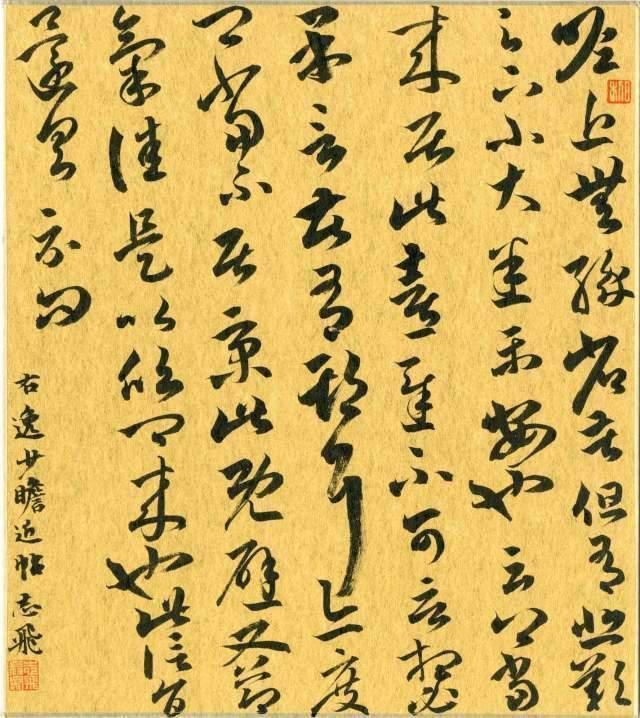 瞻近無緣省告但有悲歎
足下小大悉平安也云卿當
來居此喜遲不可言想必
果言告有期耳亦度
卿當不居京此既避又節
氣佳是以欣卿來也此信旨
還具示問
右逸少瞻近帖志飛